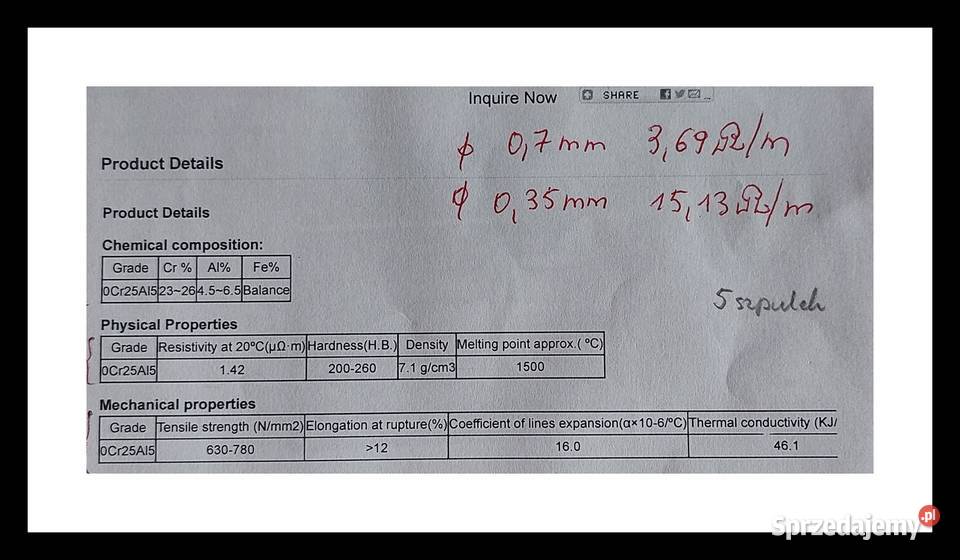 Inquire Now SHARE
ϕ 0,7 mm 3,69 Ω/m
Product Details
ϕ 0,35 mm 15,13 Ω/m
Product Details
Chemical composition:
Grade Cr % Al% Fe%
0Cr25Al5 23~26 4.5~6.5 Balance
5 szpulek
Physical Properties
Grade Resistivity at 20ºC(μΩ·m) Hardness(H.B.) Density Melting point approx.( ºC)
0Cr25Al5 1.42 200-260 7.1 g/cm3 1500
Mechanical properties
Grade Tensile strength (N/mm2) Elongation at rupture(%) Coefficient of lines expansion(α×10-6/ºC) Thermal conductivity (KJ/
0Cr25Al5 630-780 >12 16.0 46.1
Sprzedajemy.pl